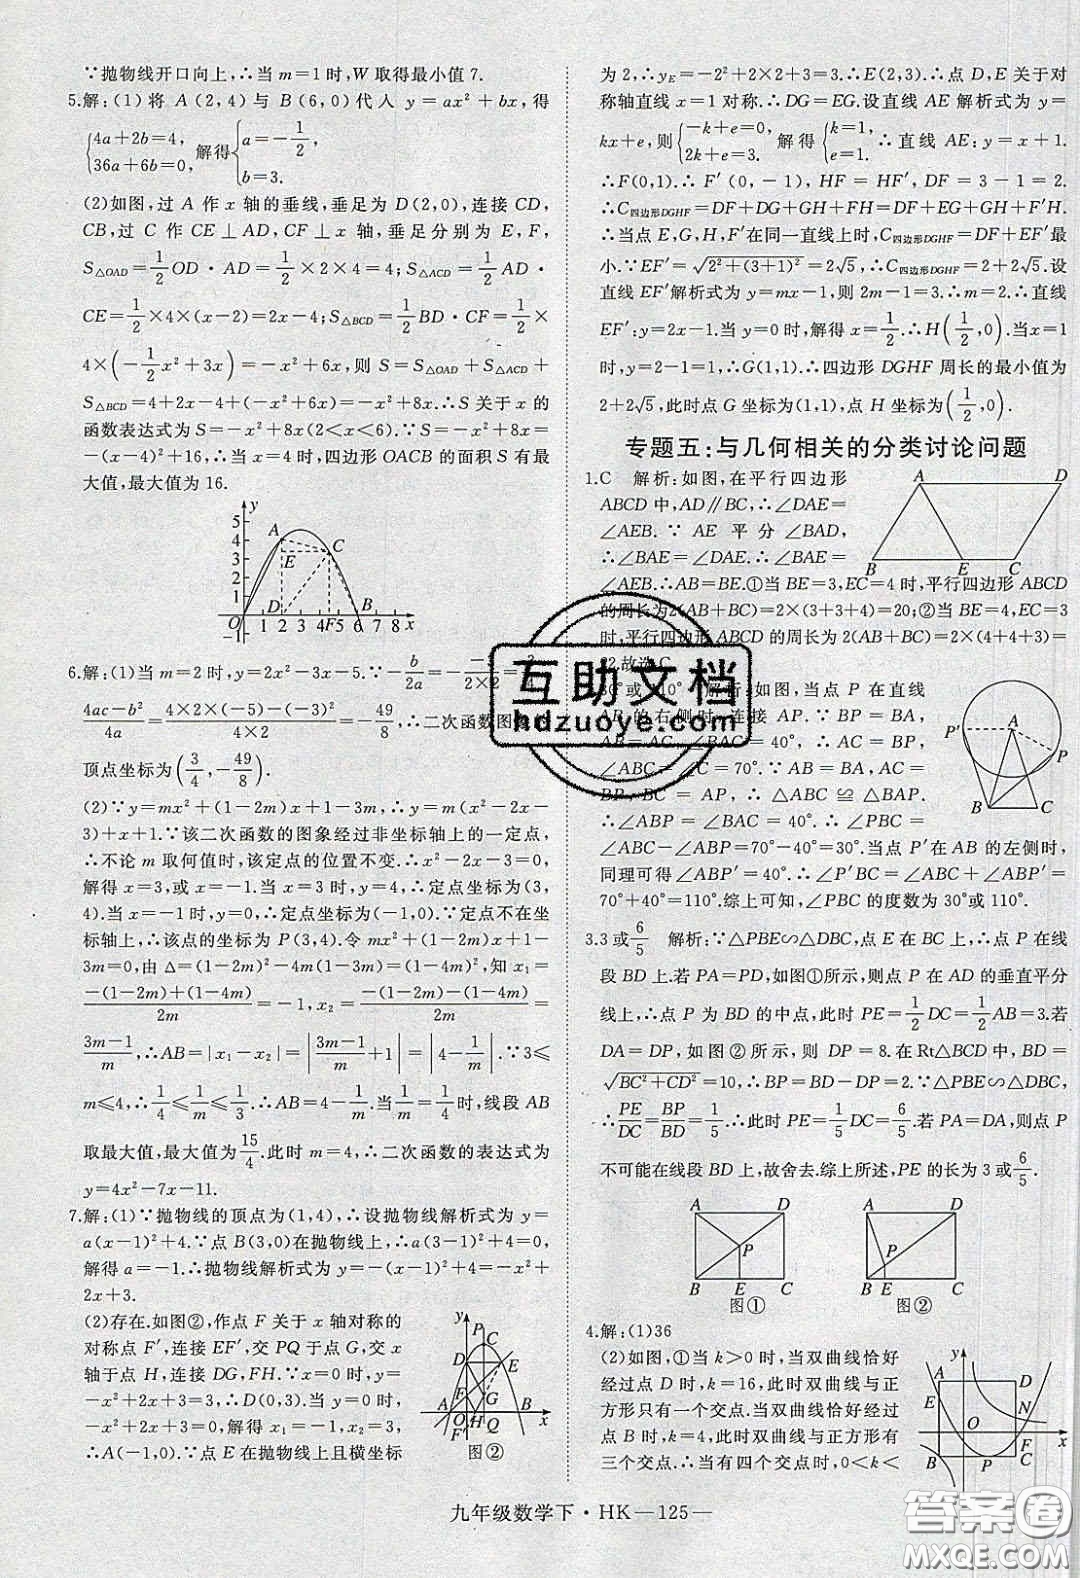 ∵抛物线开口向上,∴当 m=1时,W 取得最小值7.
5.解:(1)将 A(2,4)与 B(6,0)代入 y=ax²+bx,得
{4a+2b=4, 36a+6b=0, 解得{a=-1/2, b=3.
(2)如图,过 A 作 x 轴的垂线,垂足为 D(2,0),连接 CD,
CB,过 C 作 CE⊥AD,CF⊥x 轴,垂足分别为 E,F,
S△OAD=1/2 OD·AD=1/2×2×4=4;S△ACD=1/2 AD·
CE=1/2×4×(x-2)=2x-4;S△BCD=1/2 BD·CF=1/2×
4×(-1/2x²+3x)=-x²+6x,则 S=S△OAD+S△ACD+
S△BCD=4+2x-4+(-x²+6x)=-x²+8x.∴S 关于 x 的
函数表达式为 S=-x²+8x(2<x<6).∵S=-x²+8x=
-(x-4)²+16,∴当 x=4时,四边形 OACB 的面积 S 有最
大值,最大值为16.
y 5 4 3 2 1 -1 O A E C D F B 1 2 3 4 5 6 7 8 x
6.解:(1)当 m=2时,y=2x²-3x-5.∵-b/2a=-
4ac-b²/4a=4×2×(-5)-(-3)²/4×2=-49/8,∴二次函数图
顶点坐标为(3/4,-49/8).
(2)∵y=mx²+(1-2m)x+1-3m=m(x²-2x-
3)+x+1.∵该二次函数的图象经过非坐标轴上的一定点,
∴不论 m 取何值时,该定点的位置不变.∴x²-2x-3=0,
解得 x=3,或 x=-1.当 x=3时,y=4,∴定点坐标为(3,
4).当 x=-1时,y=0,∴定点坐标为(-1,0).∵定点不在坐
标轴上,∴该点的坐标为 P(3,4).令 mx²+(1-2m)x+1-
3m=0,由 Δ=(1-2m)²-4m(1-3m)=(1-4m)²,知 x₁=
-(1-2m)+(1-4m)/2m=-1,x₂=-(1-2m)-(1-4m)/2m=
3m-1/m,∴AB=|x₁-x₂|=|3m-1/m+1|=|4-1/m|.∵3≤
m≤4,∴1/4≤1/m≤1/3.∴AB=4-1/m.当1/m=1/4时,线段 AB
取最大值,最大值为15/4.此时 m=4,∴二次函数的表达式为
y=4x²-7x-11.
7.解:(1)∵抛物线的顶点为(1,4),∴设抛物线解析式为 y=
a(x-1)²+4.∵点 B(3,0)在抛物线上,∴a(3-1)²+4=0,
解得 a=-1.∴抛物线解析式为 y=-(x-1)²+4=-x²+
2x+3.
(2)存在.如图②,作点 F 关于 x 轴对称的
对称点 F′,连接 EF′,交 PQ 于点 G,交 x
轴于点 H,连接 DG,FH.∵抛物线 y=
-x²+2x+3,∴D(0,3).当 y=0时,
-x²+2x+3=0,解得 x₁=-1,x₂=3,
∴A(-1,0).∵点 E 在抛物线上且横坐标
y P C D E F G A O H B x F′ Q
图②
为2,∴y_E=-2²+2×2+3=3.∴E(2,3).∴点 D,E 关于对
称轴直线 x=1对称.∴DG=EG.设直线 AE 解析式为 y=
kx+e,则{-k+e=0, 2k+e=3, 解得{k=1, e=1. ∴直线 AE:y=x+1.
∴F(0,1).∴F′(0,-1),HF=HF′,DF=3-1=2.
∴C四边形DGHF=DF+DG+GH+FH=DF+EG+GH+F′H.
∴当点 E,G,H,F′在同一直线上时,C四边形DGHF=DF+EF′最
小.∵EF′=√2²+(3+1)²=2√5,∴C四边形DGHF=2+2√5.设
直线 EF′解析式为 y=mx-1,则2m-1=3.∴m=2.∴直线
EF′:y=2x-1.当 y=0时,解得 x=1/2.∴H(1/2,0).当 x=1
时,y=2-1=1,∴G(1,1).∴四边形 DGHF 周长的最小值为
2+2√5,此时点 G 坐标为(1,1),点 H 坐标为(1/2,0).
专题五:与几何相关的分类讨论问题
1.C 解析:如图,在平行四边形
ABCD 中,AD∥BC,∴∠DAE=
∠AEB.∵AE 平分∠BAD,
∴∠BAE=∠DAE.∴∠BAE=
∠AEB.∴AB=BE.①当 BE=3,EC=4时,平行四边形 ABCD
的周长为2(AB+BC)=2×(3+3+4)=20;②当 BE=4,EC=3
时,平行四边形 ABCD 的周长为2(AB+BC)=2×(4+4+3)=
22.故选 C.
A D B E C
30°或110° 解析:如图,当点 P 在直线
AB 的右侧时,连接 AP.∵BP=BA,
AB=AC,∠BAC=40°,∴AC=BP,
∠ABC=∠C=70°.∵AB=BA,AC=
BP,BC=AP,∴△ABC≌△BAP.
∴∠ABP=∠BAC=40°.∴∠PBC=
∠ABC-∠ABP=70°-40°=30°.当点 P′在 AB 的左侧时,
同理可得∠ABP′=40°.∴∠P′BC=∠ABC+∠ABP′=
70°+40°=110°.综上可知,∠PBC 的度数为30°或110°.
P′ A P B C
3.3或6/5 解析:∵△PBE∽△DBC,点 E 在 BC 上,∴点 P 在线
段 BD 上.若 PA=PD,如图①所示,则点 P 在 AD 的垂直平分
线上,∴点 P 为 BD 的中点,此时 PE=1/2DC=1/2AB=3.若
DA=DP,如图②所示,则 DP=8.在Rt△BCD 中,BD=
√BC²+CD²=10,∴BP=BD-DP=2.∵△PBE∽△DBC,
∴PE/DC=BP/BD=1/5.∴此时 PE=1/5DC=6/5.若 PA=DA,则点 P
不可能在线段 BD 上,故舍去.综上所述,PE 的长为3或6/5.
A D P B E C
图①
A D P B E C
图②
4.解:(1)36
(2)如图,①当 k>0时,当双曲线恰好
经过点 D 时,k=16,此时双曲线与正
方形只有一个交点.当双曲线恰好经过
点 B 时,k=4,此时双曲线与正方形有
三个交点.∴当有四个交点时,0<k<4
A y D E N O F x B P C
互助文档
hdzuoye.com
九年级数学下·HK—125—
答案圈
MXQE.COM